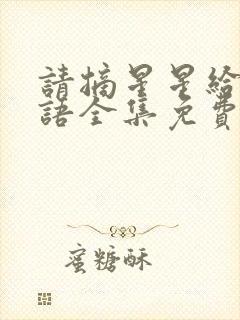 請摘星星給
語全集免費
蜜糖酥